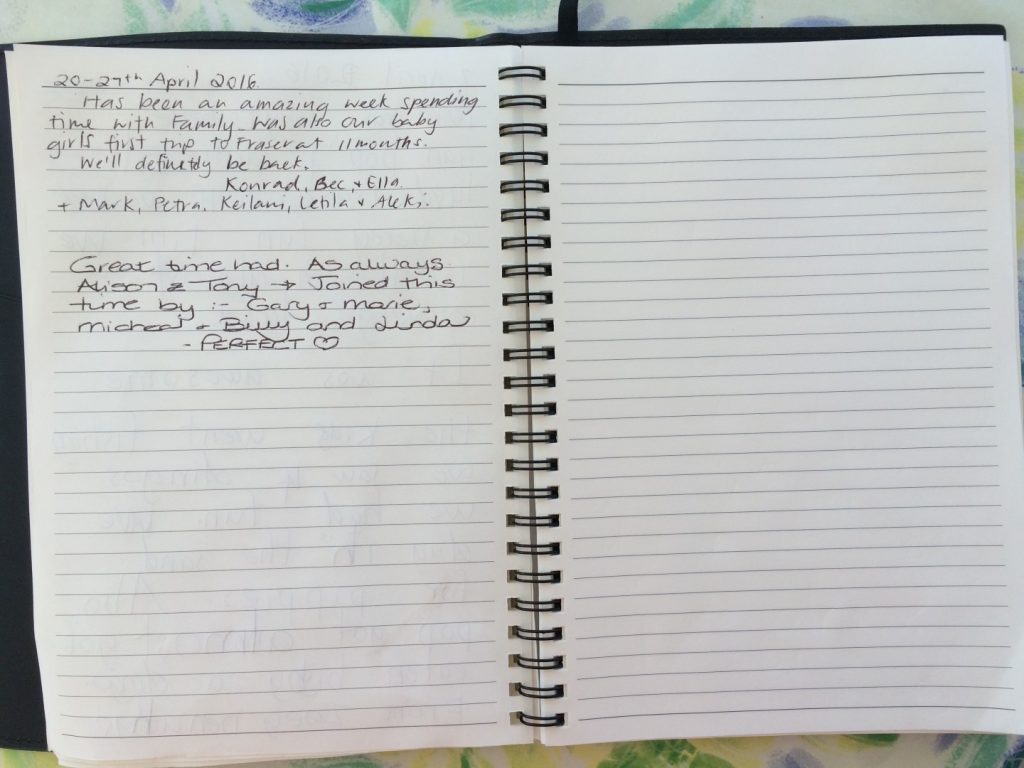 20-27th April 2016.
Has been an amazing week spending
time with Family. Was also our baby
girls first trip to Fraser at 11 months.
We'll definetly be back.
Konrad, Bec, + Ella.
+ Mark, Petra, Keilani, Letila + Aleki.
Great time had. As always
Alison & Tony → Joined this
time by :- Gary + Marie,
Micheal + Billy and Linda
- PERFECT ♡